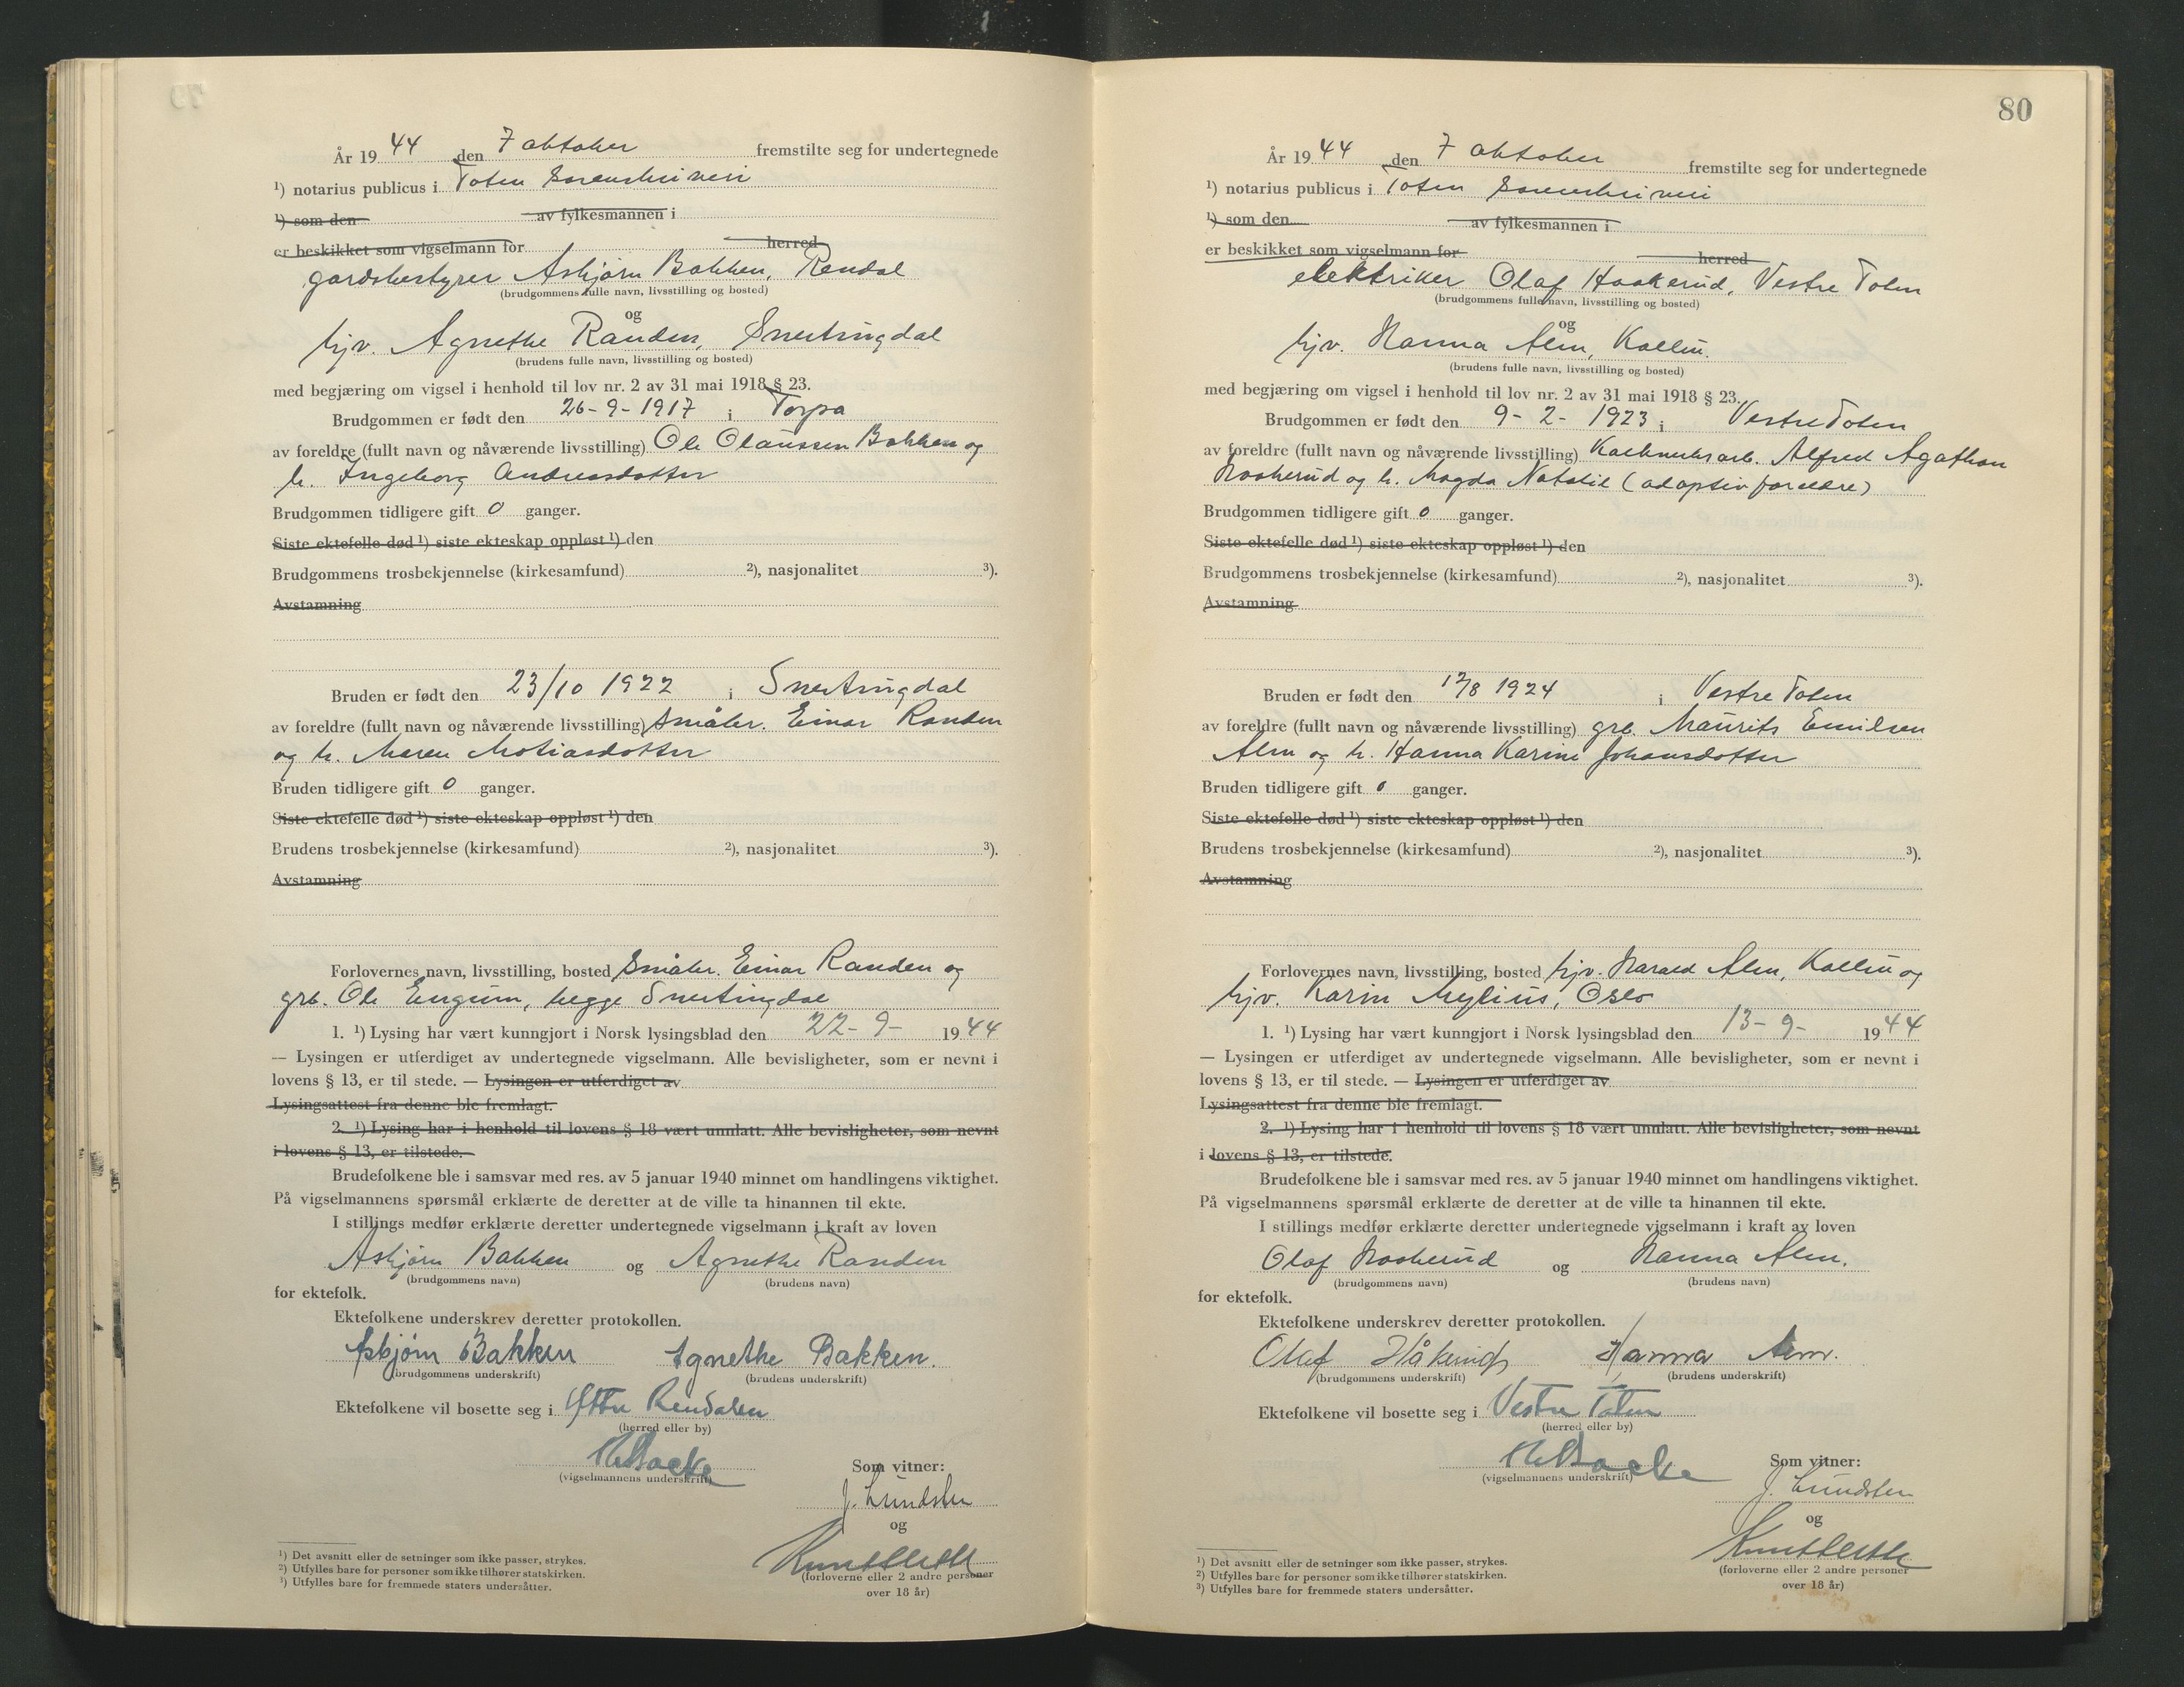 År 19 44 den 7 oktober fremstilte seg for undertegnede
¹) notarius publicus i Toten Sorenskriveri
¹) som den av fylkesmannen i
er beskikket som vigselmann for herred
gardsbestyrer Asbjørn Bakken, Rendal
(brudgommens fulle navn, livsstilling og bosted)
og
hjv. Agnethe Randen, Snertingdal
(brudens fulle navn, livsstilling og bosted)
med begjæring om vigsel i henhold til lov nr. 2 av 31 mai 1918 § 23.
Brudgommen er født den 26-9-1917 i Torpa
av foreldre (fullt navn og nåværende livsstilling) Ole Olaussen Bakken og
h. Ingeborg Andreasdotter
Brudgommen tidligere gift 0 ganger.
Siste ektefelle død ¹) siste ekteskap oppløst ¹) den
Brudgommens trosbekjennelse (kirkesamfund) ²), nasjonalitet ³).
Avstamning
Bruden er født den 23/10 1922 i Snertingdal
av foreldre (fullt navn og nåværende livsstilling) småbr. Einar Randen
og h. Maren Matiasdotter
Bruden tidligere gift 0 ganger.
Siste ektefelle død ¹) siste ekteskap oppløst ¹) den
Brudens trosbekjennelse (kirkesamfund) ²), nasjonalitet ³).
Avstamning
Forlovernes navn, livsstilling, bosted småbr. Einar Randen og
grb. Ole Engum, begge Snertingdal
1. ¹) Lysing har vært kunngjort i Norsk lysingsblad den 22-9- 1944
— Lysingen er utferdiget av undertegnede vigselmann. Alle bevisligheter, som er nevnt i
lovens § 13, er til stede. — Lysingen er utferdiget av
Lysingsattest fra denne ble fremlagt.
2. ¹) Lysing har i henhold til lovens § 18 vært unnlatt. Alle bevisligheter, som nevnt
i lovens § 13, er tilstede.
Brudefolkene ble i samsvar med res. av 5 januar 1940 minnet om handlingens viktighet.
På vigselmannens spørsmål erklærte de deretter at de ville ta hinannen til ekte.
I stillings medfør erklærte deretter undertegnede vigselmann i kraft av loven
Asbjørn Bakken og Agnethe Randen
(brudgommens navn) (brudens navn)
for ektefolk.
Ektefolkene underskrev deretter protokollen.
Asbjørn Bakken Agnethe Bakken.
(brudgommens underskrift) (brudens underskrift)
Ektefolkene vil bosette seg i Yttre Rendalen
(herred eller by)
(vigselmannens underskrift)
Som vitner:
J. Lundsten
og
(forloverne eller 2 andre personer
over 18 år)
¹) Det avsnitt eller de setninger som ikke passer, strykes.
²) Utfylles bare for personer som ikke tilhører statskirken.
³) Utfylles bare for fremmede staters undersåtter.
80
År 19 44 den 7 oktober fremstilte seg for undertegnede
¹) notarius publicus i Toten Sorenskriveri
¹) som den av fylkesmannen i
er beskikket som vigselmann for herred
elektriker Olaf Haakerud, Vestre Toten
(brudgommens fulle navn, livsstilling og bosted)
og
hjv. Hanna Alm, Kolbu.
(brudens fulle navn, livsstilling og bosted)
med begjæring om vigsel i henhold til lov nr. 2 av 31 mai 1918 § 23.
Brudgommen er født den 9-2-1923 i Vestre Toten
av foreldre (fullt navn og nåværende livsstilling) Kalkverksarb. Alfred Agathon
Haakerud og h. Magda Natalie (adoptivforeldre)
Brudgommen tidligere gift 0 ganger.
Siste ektefelle død ¹) siste ekteskap oppløst ¹) den
Brudgommens trosbekjennelse (kirkesamfund) ²), nasjonalitet ³).
Avstamning
Bruden er født den 12/8 1924 i Vestre Toten
av foreldre (fullt navn og nåværende livsstilling) grb. Maurits Emilsen
Alm og h. Hanna Karine Johansdotter
Bruden tidligere gift 0 ganger.
Siste ektefelle død ¹) siste ekteskap oppløst ¹) den
Brudens trosbekjennelse (kirkesamfund) ²), nasjonalitet ³).
Avstamning
Forlovernes navn, livsstilling, bosted hjv. Harald Alm, Kolbu og
hjv. Karin Mylius, Oslo
1. ¹) Lysing har vært kunngjort i Norsk lysingsblad den 13-9- 1944
— Lysingen er utferdiget av undertegnede vigselmann. Alle bevisligheter, som er nevnt i
lovens § 13, er til stede. — Lysingen er utferdiget av
Lysingsattest fra denne ble fremlagt.
2. ¹) Lysing har i henhold til lovens § 18 vært unnlatt. Alle bevisligheter, som nevnt
i lovens § 13, er tilstede.
Brudefolkene ble i samsvar med res. av 5 januar 1940 minnet om handlingens viktighet.
På vigselmannens spørsmål erklærte de deretter at de ville ta hinannen til ekte.
I stillings medfør erklærte deretter undertegnede vigselmann i kraft av loven
Olaf Haakerud og Hanna Alm.
(brudgommens navn) (brudens navn)
for ektefolk.
Ektefolkene underskrev deretter protokollen.
Olaf Håkerud Hanna Alm.
(brudgommens underskrift) (brudens underskrift)
Ektefolkene vil bosette seg i Vestre Toten
(herred eller by)
(vigselmannens underskrift)
Som vitner:
J. Lundsten
og
(forloverne eller 2 andre personer
over 18 år)
¹) Det avsnitt eller de setninger som ikke passer, strykes.
²) Utfylles bare for personer som ikke tilhører statskirken.
³) Utfylles bare for fremmede staters undersåtter.